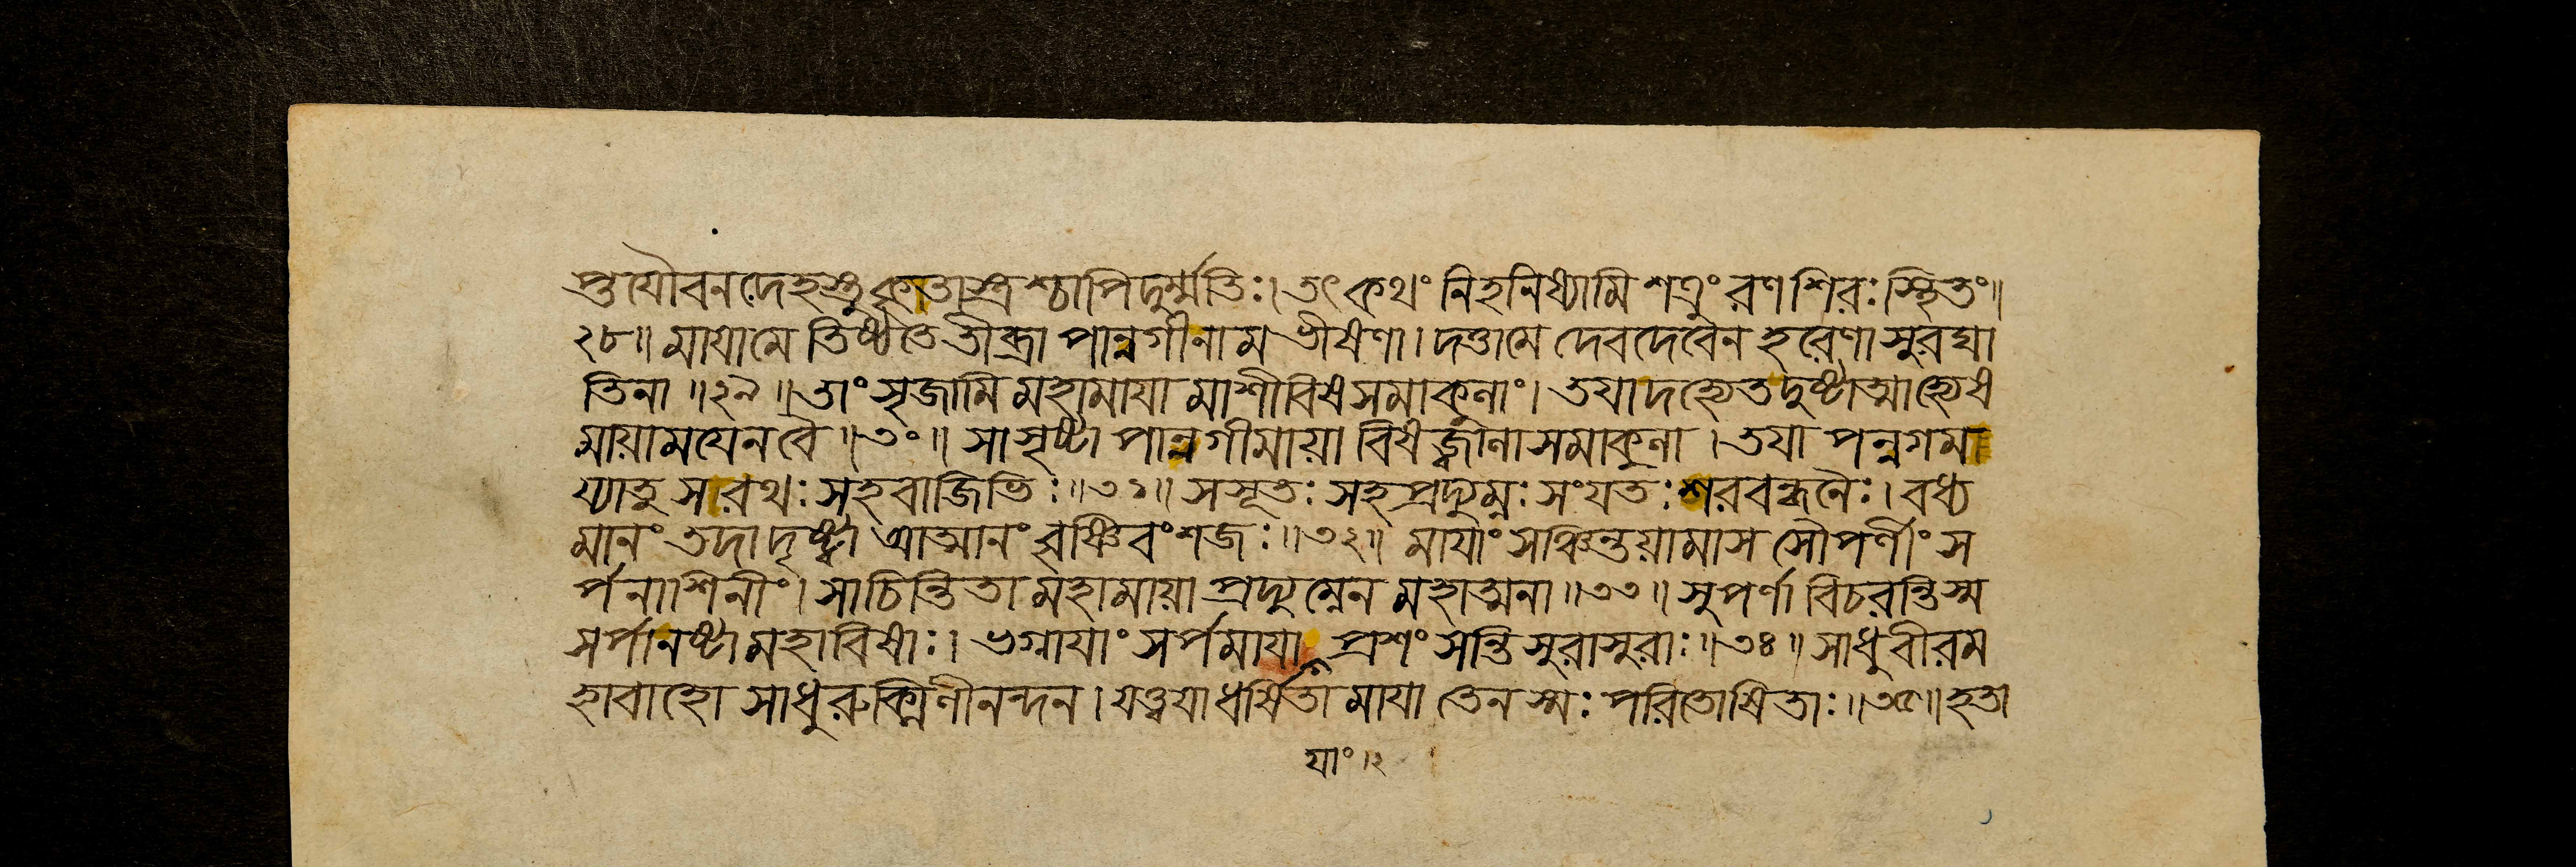 প্তযৌবনদেহস্তু কৃতাস্ত্রশ্চাপিদুর্ম্মতিঃ। তৎকথং নিহনিষ্যামি শত্রুং রণশিরঃস্থিতং॥
২৮॥ মাযামে তিষ্ঠতে তীব্রা পান্নগীনাম ভীষণা। দত্তামে দেবদেবেন হরেণাসুরঘা
তিনা ॥২৯॥ তাং সৃজামি মহামাযামাশীবিষসমাকুলাং। তযাদহ্যেতদুষ্টাত্মাহ্যেষ
মায়াময়েনবৈ ॥৩০॥ সাসৃষ্টা পান্নগীমায়া বিষজ্বালাসমাকুলা। তযা পন্নগমা
য্যাতু সরথঃ সহবাজিভিঃ॥৩১॥ সসূতঃ সহপ্রদ্যুম্নঃ সংযতঃ শরবন্ধনৈঃ। বধ্য
মানং তদাদৃষ্ট্বা আত্মানং বৃষ্ণিবংশজঃ॥৩২॥ মাযাং সঞ্চিন্তয়ামাস সৌপর্ণীং স
র্পনাশিনীং। সাচিন্তিতা মহামায়া প্রদ্যুম্নেন মহাত্মনা॥৩৩॥ সুপর্ণা বিচরন্তিস্ম
সর্পানষ্টা মহাবিষাঃ। ভগ্নাযাং সর্পমাযা প্রশংসন্তি সুরাসুরাঃ॥৩৪॥ সাধুবীরম
হাবাহো সাধুরুক্মিণীনন্দন। যত্ত্বযাধর্ষিতা মাযা তেন স্মঃ পরিতোষিতাঃ॥৩৫॥ হতা
যাং।২